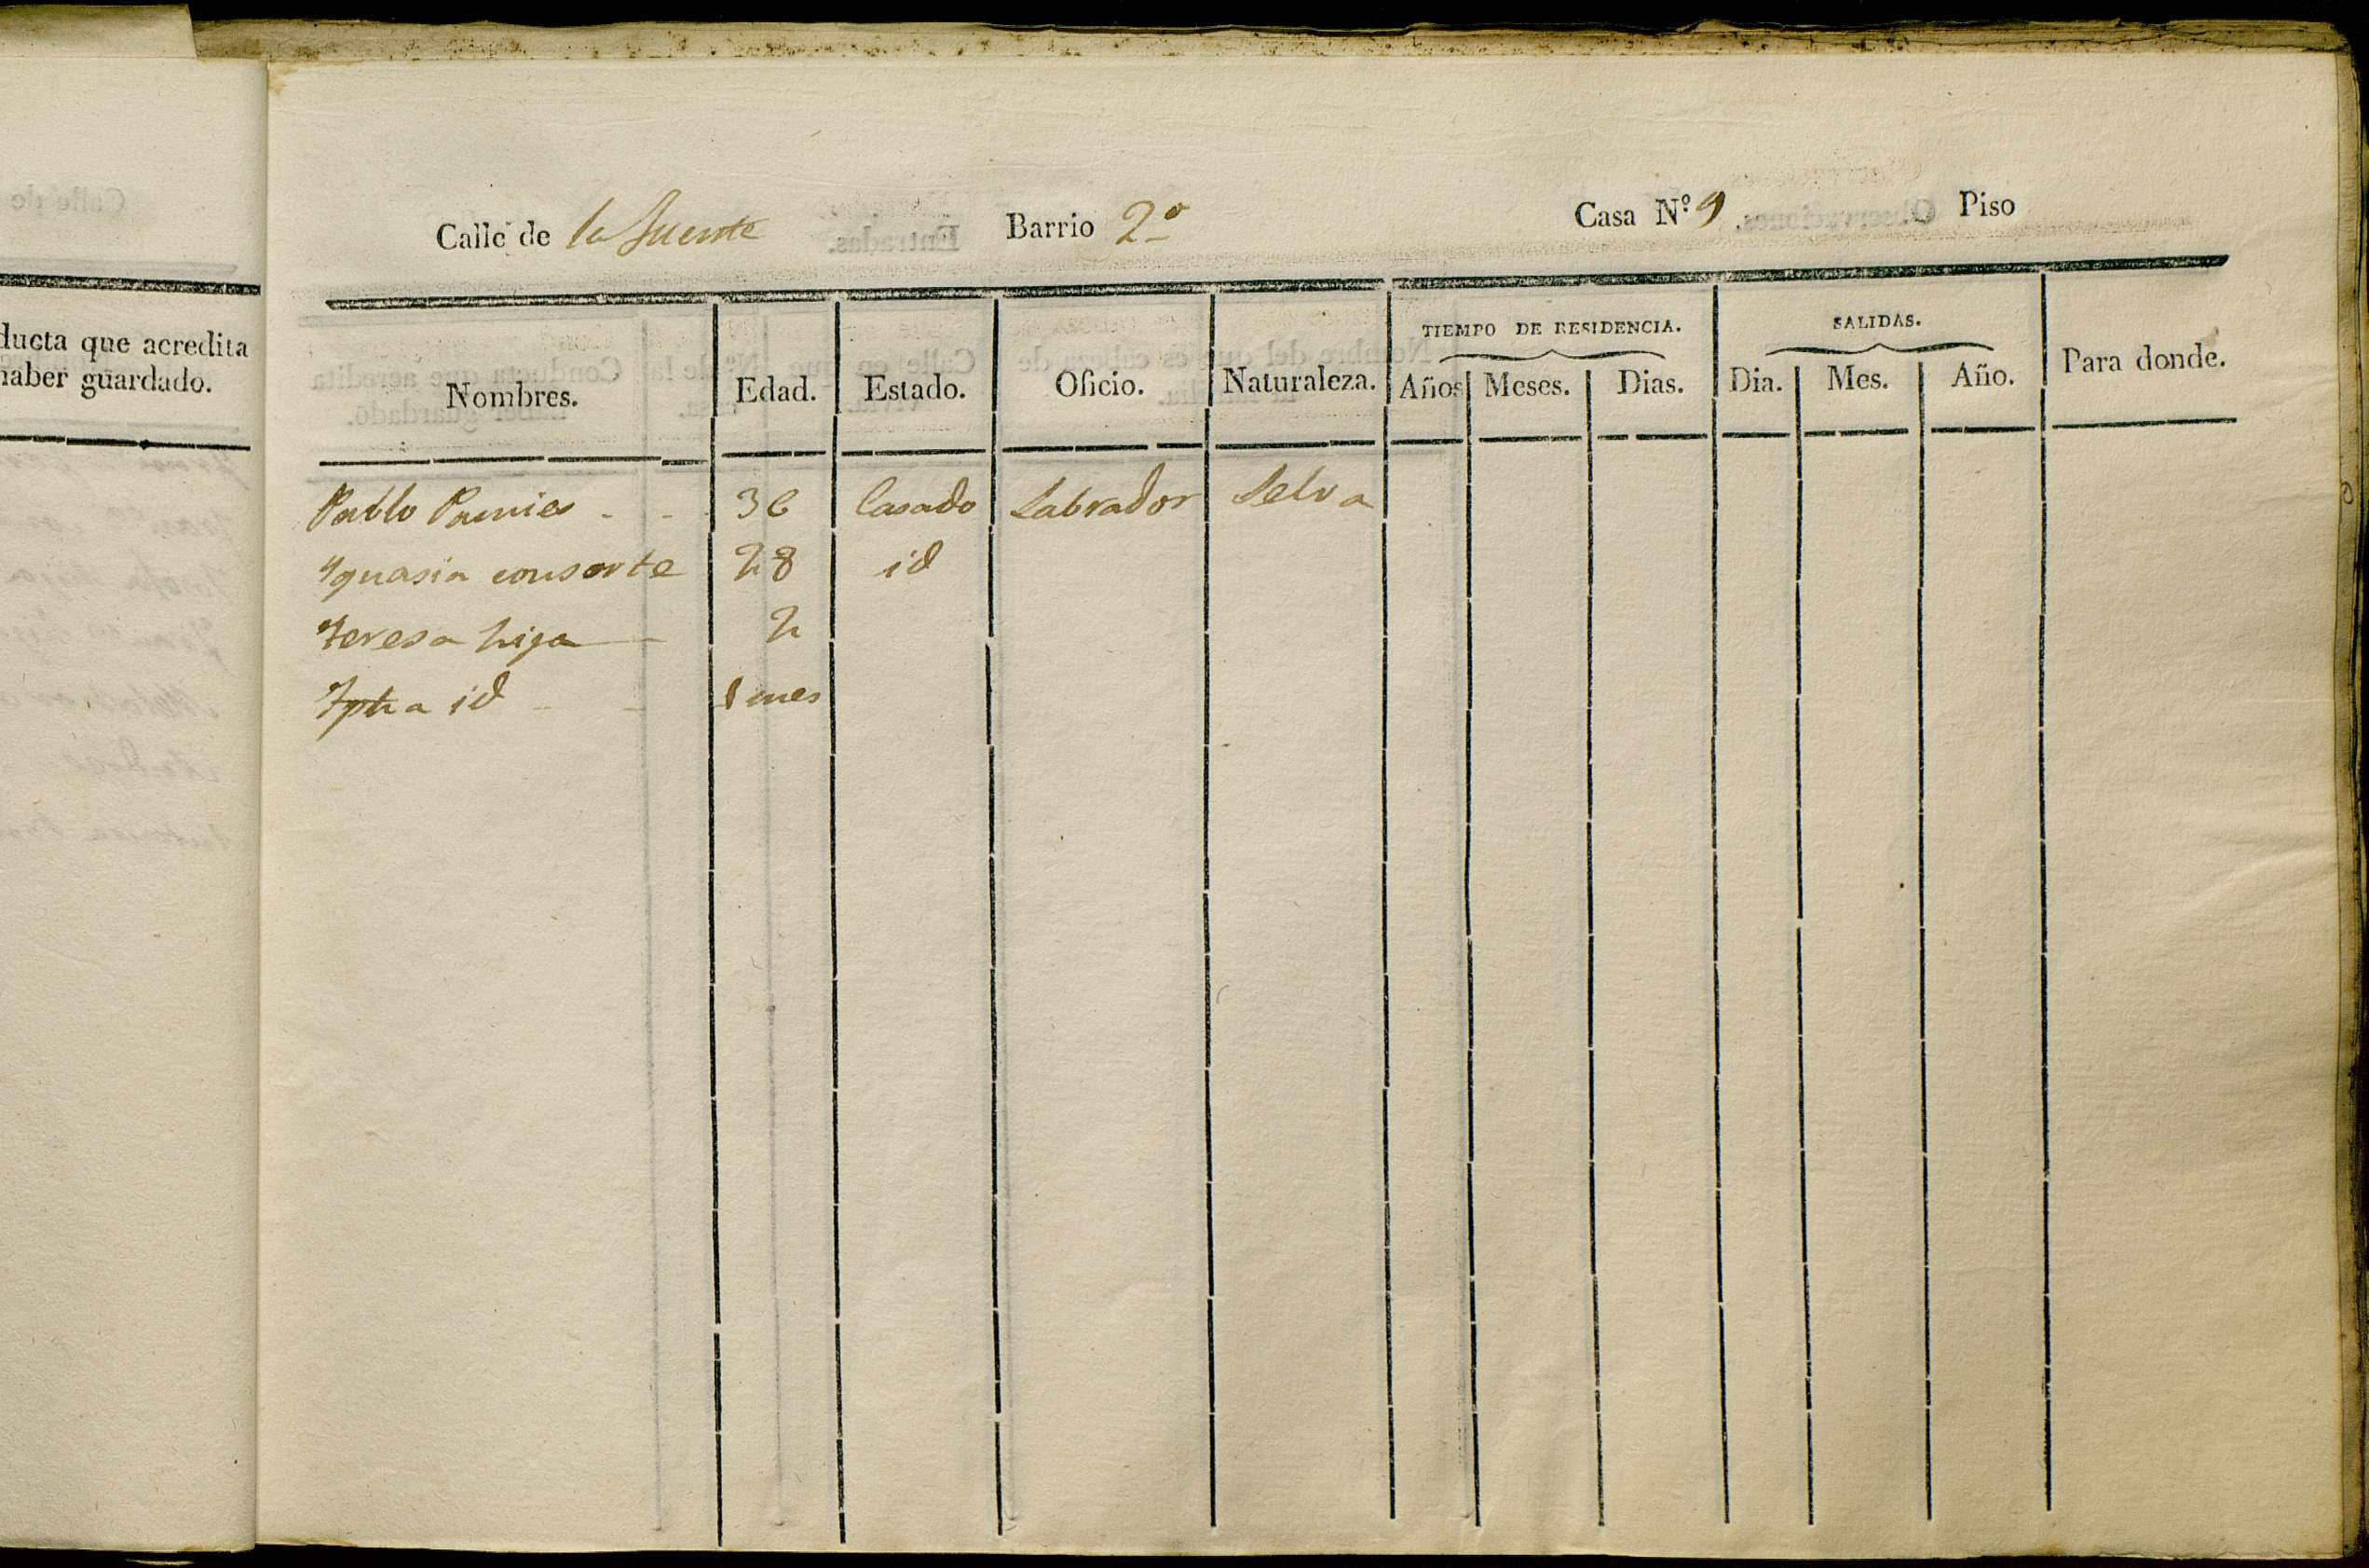 ducta que acredita
haber guardado.
Calle de la fuente Barrio 2º Casa Nº 9 Piso
TIEMPO DE RESIDENCIA. SALIDAS.
Nombres. Edad. Estado. Oficio. Naturaleza. Años Meses. Dias. Dia. Mes. Año. Para donde.
Pablo Pamies - - 36 Casado Labrador Selva
Ygnasia consorte 28 id
Teresa hija 2
Jpha id - - 1 mes